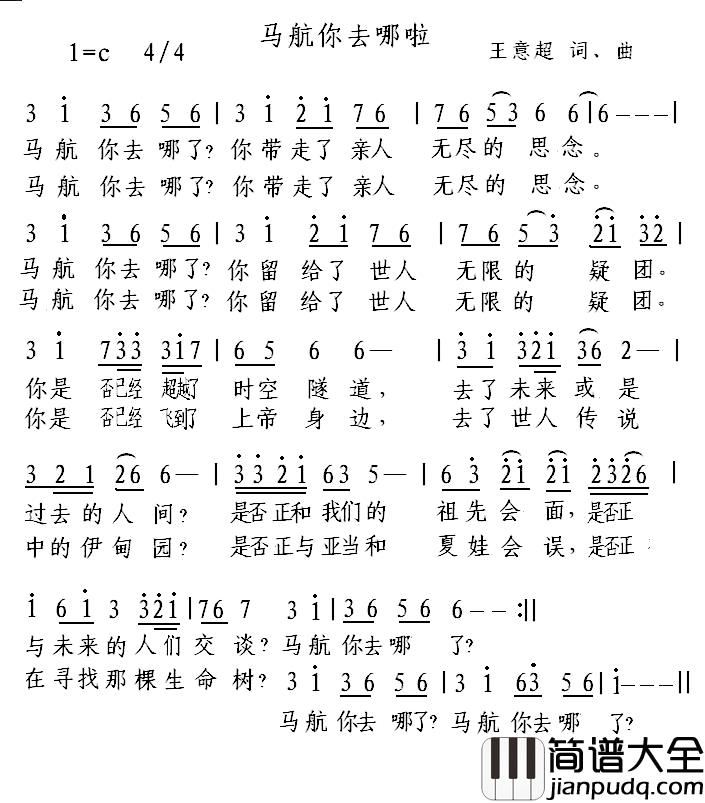 马航你去哪啦
1=c 4/4 王意超 词、曲
3 1 3 6 5 6 | 3 1 2 1 7 6 | 7 6 5 3 6 6 | 6 - - - |
马航 你去 哪了? 你带走了 亲人 无尽的 思念。
马航 你去 哪了? 你带走了 亲人 无尽的 思念。
3 1 3 6 5 6 | 3 1 2 1 7 6 | 7 6 5 3 2 1 3 2 |
马航 你去 哪了? 你留 给了 世人 无限的 疑团。
马航 你去 哪了? 你留 给了 世人 无限的 疑团。
3 1 7 3 3 3 1 7 | 6 5 6 6 — | 3 1 3 2 1 3 6 2 — |
你是 否已经 超越了 时空 隧道, 去了未来或是
你是 否已经 飞到了 上帝 身边, 去了世人传说
3 2 1 2 6 6 — | 3 3 2 1 6 3 5 — | 6 3 2 1 2 1 2 3 2 6 |
过去的人间? 是否正和我们的 祖先会面,是否正
中的伊甸园? 是否正与亚当和 夏娃会误,是否正
1 6 1 3 3 2 1 | 7 6 7 3 1 | 3 6 5 6 6 - - :||
与未来的人们交谈? 马航你去哪 了?
在寻找那棵生命树? 3 1 3 6 5 6 | 3 1 6 3 5 6 | 1 - - - ||
马航 你去 哪了? 马航 你去哪 了?
简谱大全
jianpudq.com